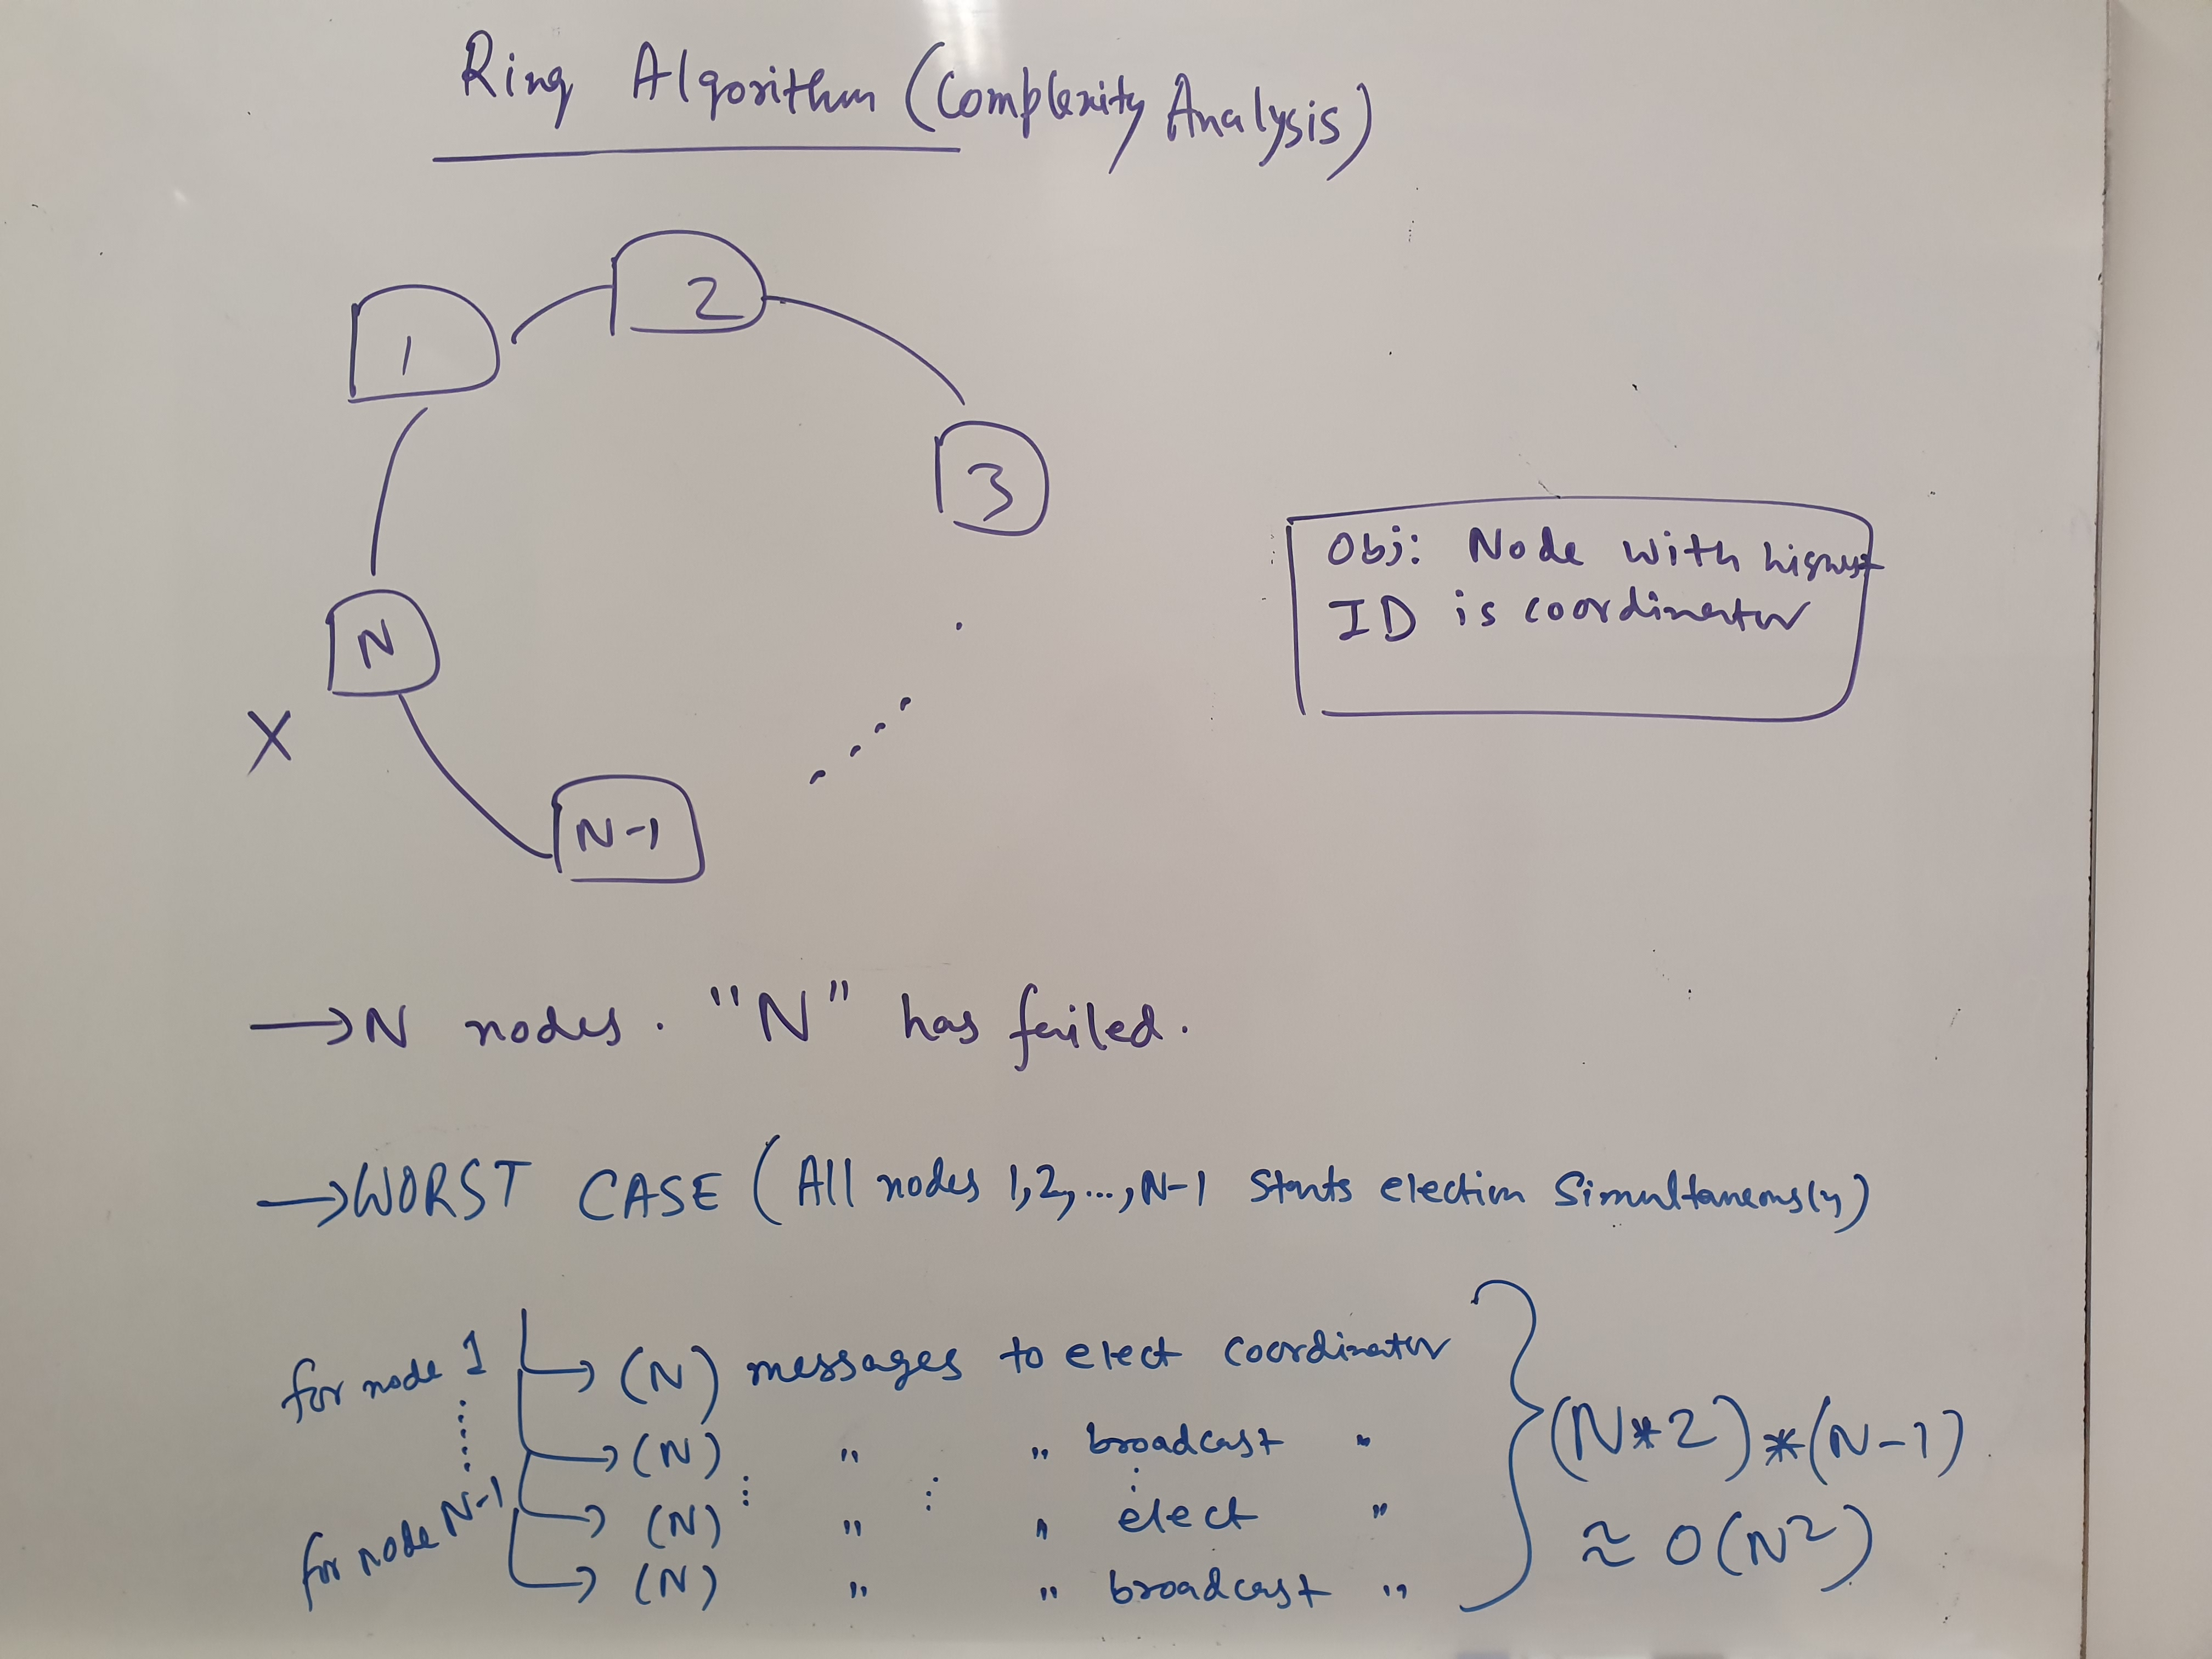 Ring Algorithm (Complexity Analysis)
2
1
3
Obj: Node with highest
ID is coordinator
N
X
N-1
→ N nodes. "N" has failed.
→ WORST CASE (All nodes 1,2,...,N-1 starts election simultaneously)
for node 1 → (N) messages to elect coordinator
→ (N) " " broadcast "
for node N-1 → (N) " " elect "
→ (N) " " broadcast "
(N*2)*(N-1)
≈ O(N²)